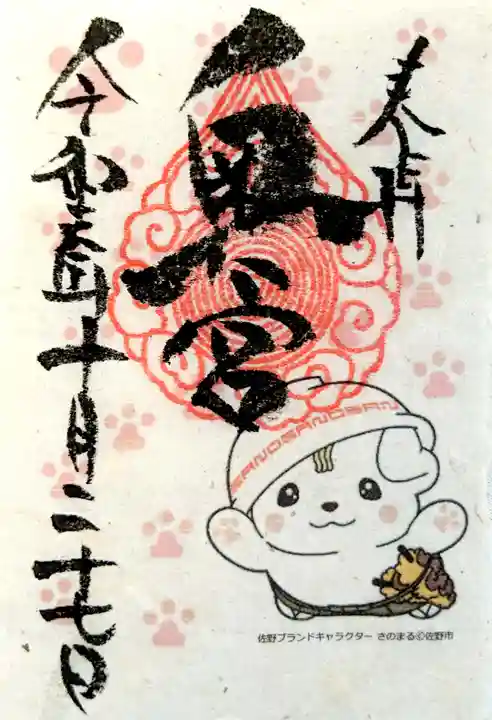 奉拝
宮
令和 年十月二十七日
SANOSANOSAN
佐野ブランドキャラクター さのまる©佐野市